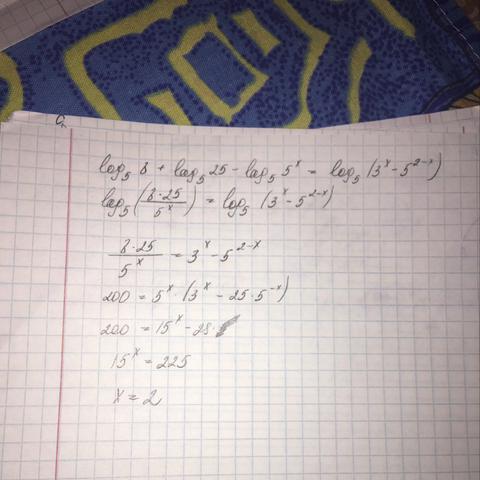 log₅ 8 + log₅ 25 - log₅ 5ˣ = log₅ (3ˣ - 5²⁻ˣ)
log₅ (8·25 / 5ˣ) = log₅ (3ˣ - 5²⁻ˣ)
8·25 / 5ˣ = 3ˣ - 5²⁻ˣ
200 = 5ˣ · (3ˣ - 25 · 5⁻ˣ)
200 = 15ˣ - 25
15ˣ = 225
x = 2